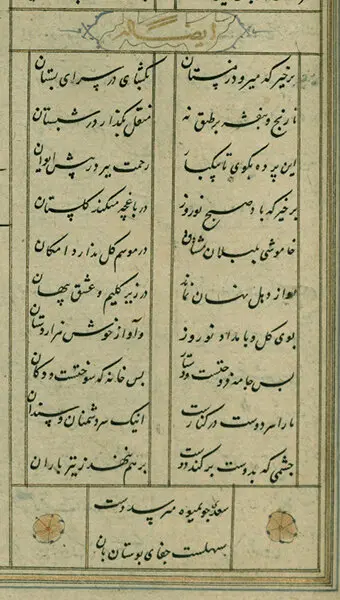 ایضاً له
برخیز که میرود زمستان بگشای در سرای بستان
نارنج و بنفشه بر طبق نه منقل بگذار در شبستان
این پرده بگوی تا بیکبار زحمت ببرد ز پیش ایوان
برخیز که باد صبح نوروز در باغچه میکند گلستان
خاموشی بلبلان مشتاق در موسم گل ندارد امکان
آواز دهل نهان نماند در زیر گلیم و عشق پنهان
بوی گل و بامداد نوروز و آواز خوش هزاردستان
بس جامه فروختست و دستار بس خانه که سوختست و دکان
ما را سر دوست در کنارست آنک سر دشمنان و سندان
چشمی که بدوست برکند دوست بر هم ننهد ز تیرباران
سعدی چو بمیوه میرسد دست
سهلست جفای بوستان بان